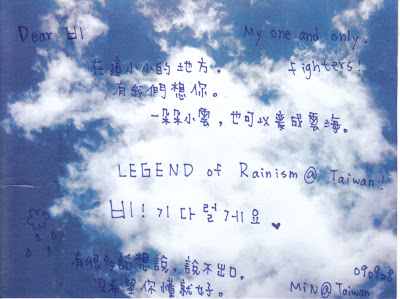 Dear 비
My one and only.
fighters!
在這小小的地方。
有我們想你。
一朵朵小雲，也可以變成雲海。
LEGEND of Rainism @ Taiwan!
비! 기다릴게요 ♥
有很多話想說，說不出口。
只希望你懂就好。
090908
MiN@Taiwan